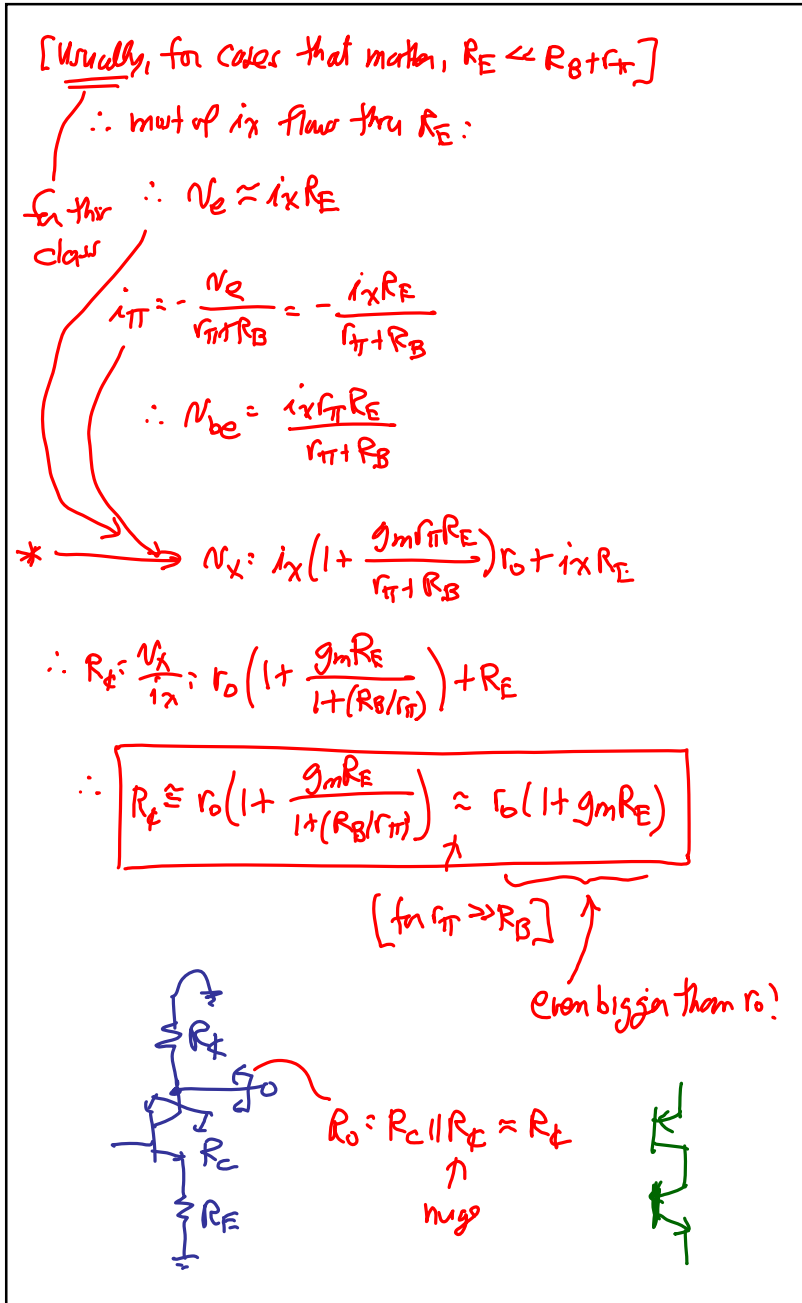 [Usually, for cases that matter, R_E << R_B + r_π]
∴ most of i_x flows thru R_E:
for this class
∴ v_e ≈ i_x R_E
i_π = - v_e / (r_π + R_B) = - i_x R_E / (r_π + R_B)
∴ v_be = i_x r_π R_E / (r_π + R_B)
* v_x = i_x (1 + g_m r_π R_E / (r_π + R_B)) r_o + i_x R_E
∴ R_¢ = v_x / i_x = r_o (1 + g_m R_E / (1 + (R_B / r_π))) + R_E
∴ R_¢ ≅ r_o (1 + g_m R_E / (1 + (R_B / r_π))) ≈ r_o (1 + g_m R_E)
[for r_π >> R_B]
even bigger than r_o!
R_¢
R_o = R_C || R_¢ ≈ R_¢
R_C
huge
R_E